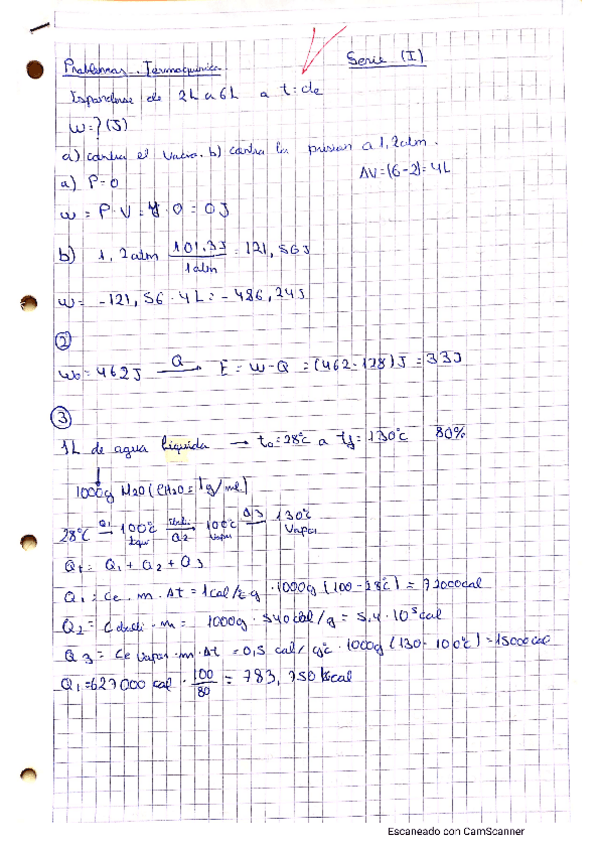 Serie (I)
Problemas. Termoquímica.
Expandirse de 2L a 6L a t: cte
W=? (J)
a) contra el vacío. b) contra la presion a 1,2atm.
ΔV=(6-2)=4L
a) P=0
w = P.V = 4.0 = 0J
b) 1,2atm 101.3J / 1atm = 121,56J
w= -121,56 . 4L = -486,24J
②
W= 462J Q→ E = W-Q = (462-128)J = 33J
③
1L de agua líquida → to=28°C a tf=130°C 80%
1000g H2O (ρH2O = 1g/ml)
28°C Q1→ 100°C Q2→ 100°C Q3→ 130°C
vapor vapor
Qt= Q1 + Q2 + Q3
Q1 = Ce . m . Δt = 1cal/°C g . 1000g (100-28°C) = 72000cal
Q2 = m = 1000g . 540cal/g = 5,4 . 10⁵ cal
Q3 = Ce vapor . m . Δt = 0,5 cal/g°C . 1000g (130-100°C) = 15000cal
Q1=627000 cal . 100/80 = 783,750 kcal
Escaneado con CamScanner